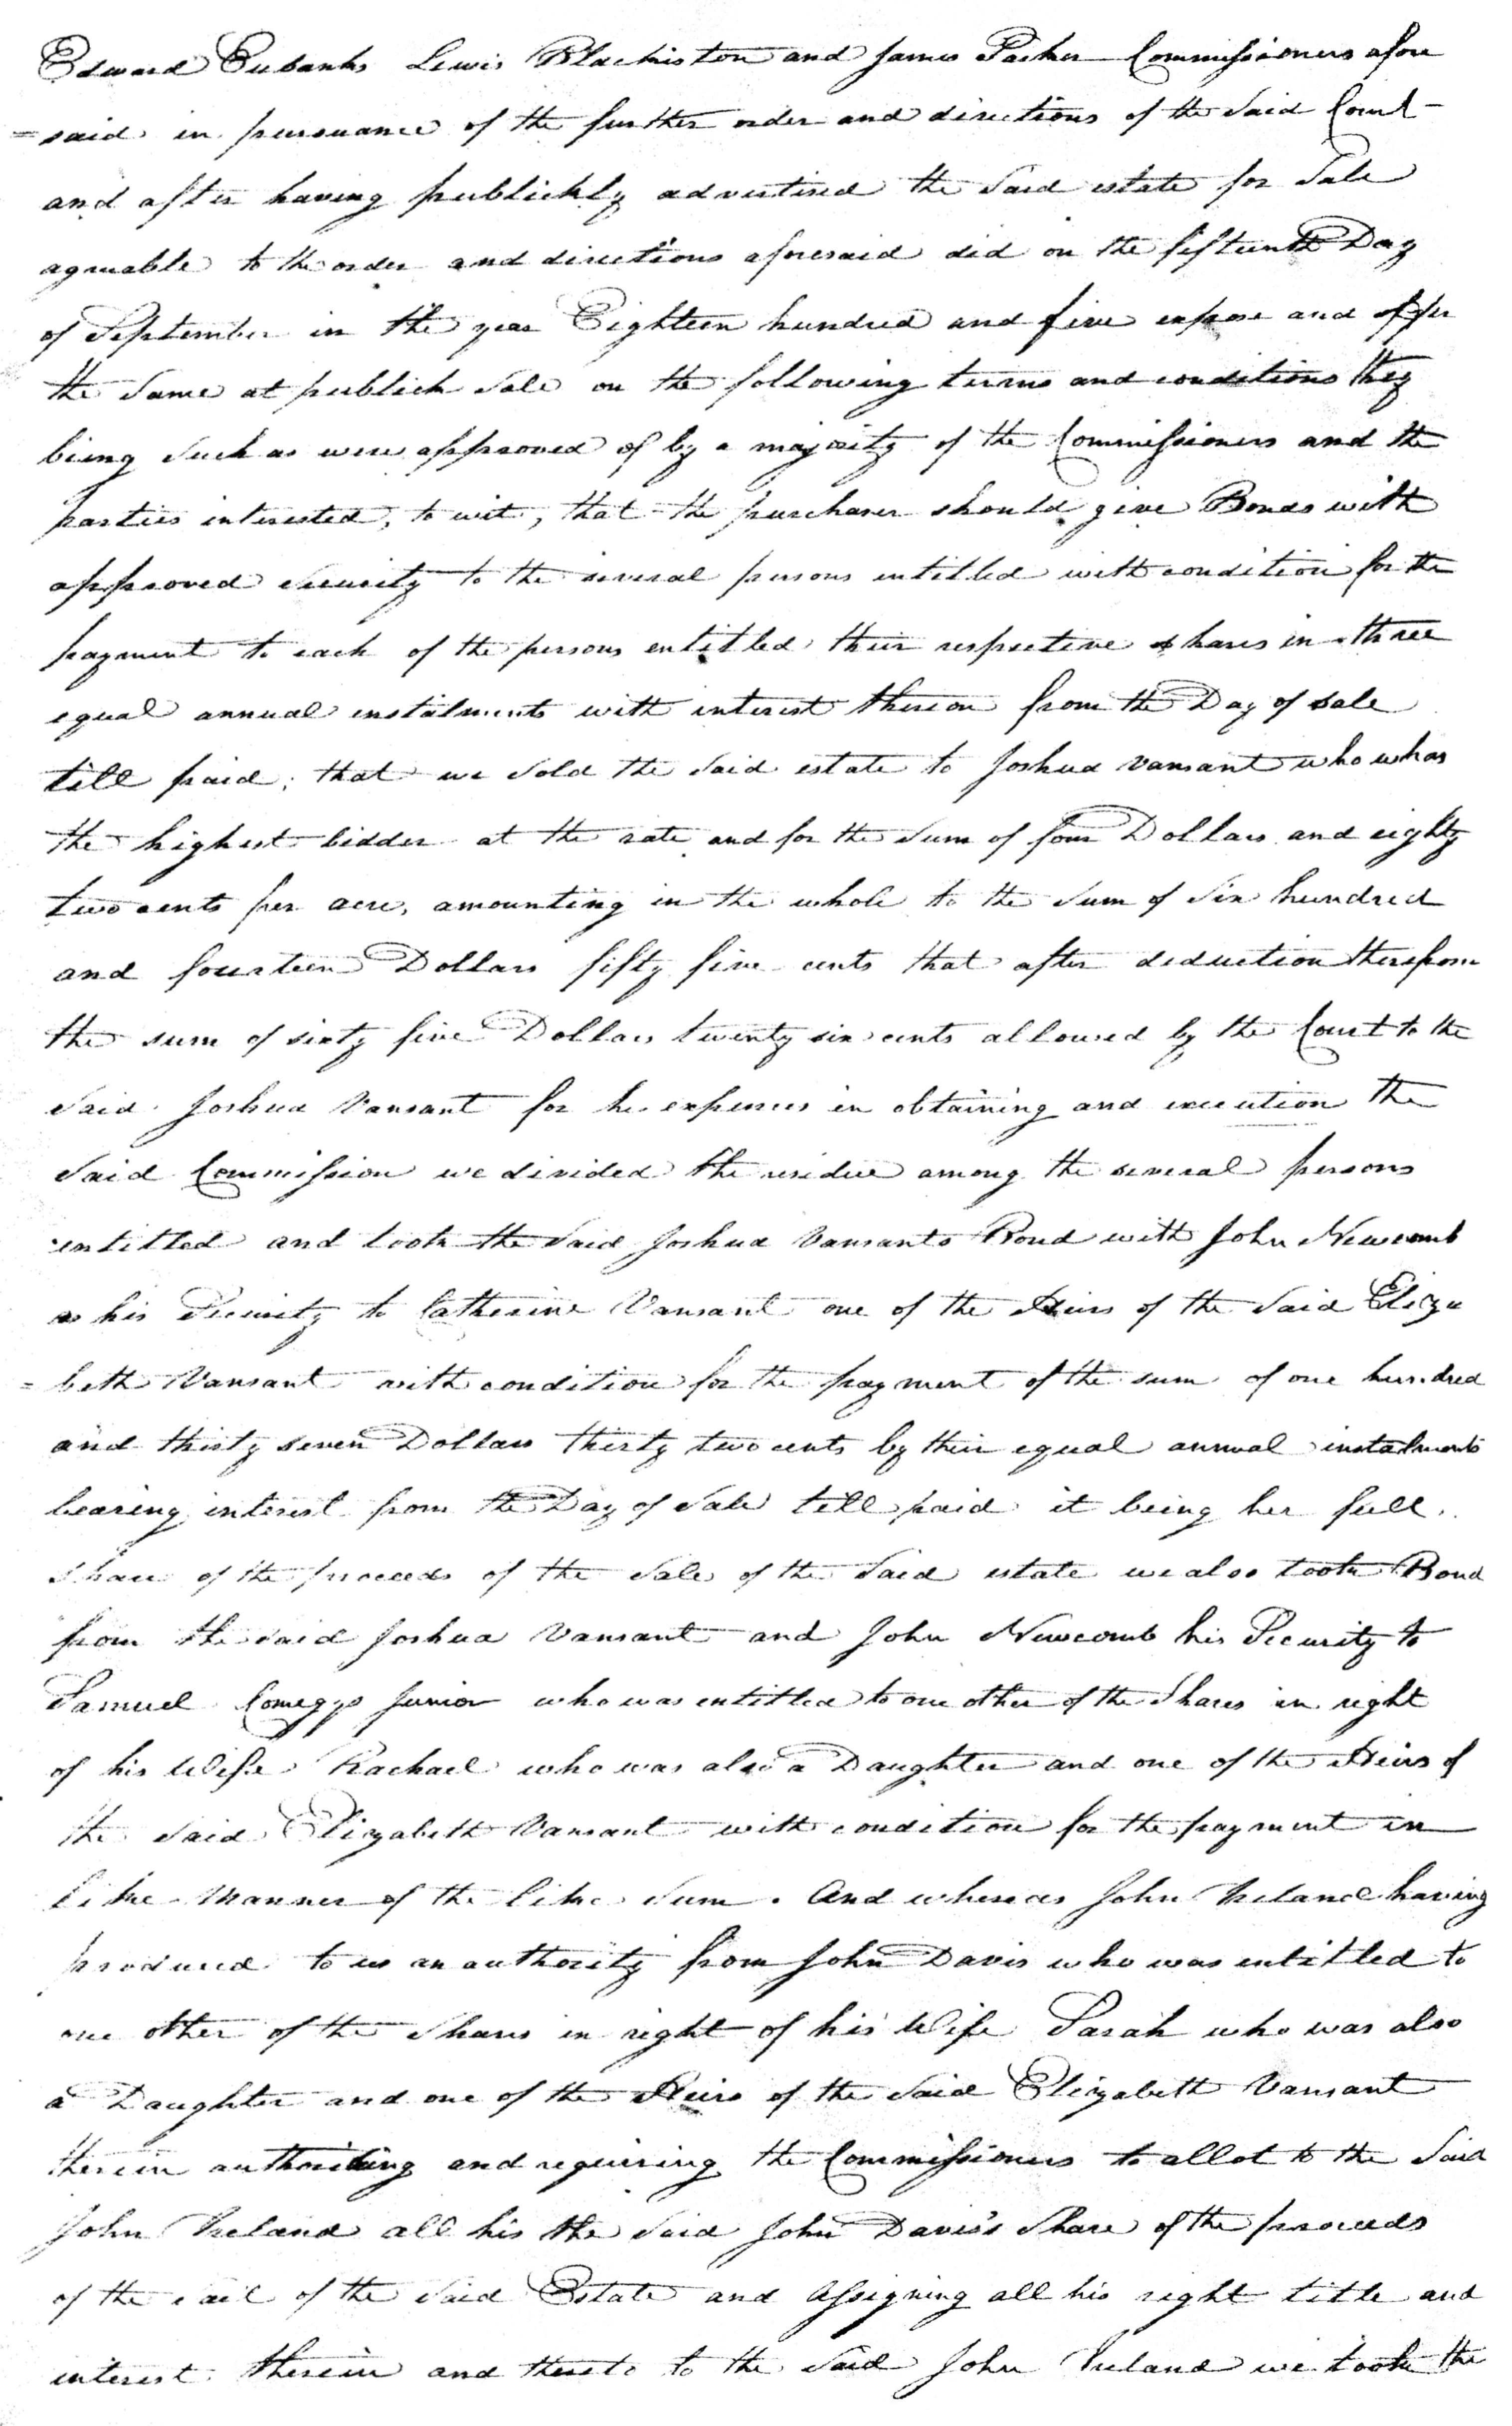 Edward Eubanks Lewis Blackiston and James Parker Commissioners afore
= said in pursuance of the further order and directions of the Said Court -
and after having publickly advertised the Said estate for Sale
agreeable to the order and directions aforesaid did on the fifteenth Day
of September in the year Eighteen hundred and five expose and offer
the Same at publick Sale on the following terms and conditions they
being Such as were approved of by a majority of the Commissioners and the
parties interested, to wit, that the purchaser should give Bonds with
approved Security to the several persons intitled with condition for the
payment to each of the persons entitled their respective shares in three
equal annual instalments with interest thereon from the Day of sale
till paid; that we Sold the Said estate to Joshua Vansant who whas
the highest bidder at the rate and for the Sum of four Dollars and eighty
two cents per acre, amounting in the whole to the Sum of Six hundred
and fourteen Dollars fifty five cents that after deduction therefrom
the sum of sixty five Dollars twenty six cents allowed by the Court to the
Said Joshua Vansant for his expences in obtaining and execution the
Said Commission we divided the residue among the several persons
entitled and took the Said Joshua Vansants Bond with John Newcomb
as his Security to Catherine Vansant one of the Heirs of the Said Eliza
= beth Vansant with condition for the payment of the sum of one hundred
and thirty seven Dollars thirty two cents by three equal annual instalments
bearing interest from the Day of Sale till paid it being her full
Share of the proceeds of the Sale of the Said estate we also took Bond
from the said Joshua Vansant and John Newcomb his Security to
Samuel Comegys Junior who was entitled to one other of the Shares in right
of his Wife Rachael who was also a Daughter and one of the Heirs of
the Said Elizabeth Vansant with condition for the payment in
like Manner of the like Sum. And whereas John Ireland having
produced to us an authority from John Davis who was entitled to
one other of the Shares in right of his Wife Sarah who was also
a Daughter and one of the Heirs of the Said Elizabeth Vansant
therein authorising and requiring the Commissioners to allot to the Said
John Ireland all his the Said John Davis's Share of the proceeds
of the sail of the Said Estate and Assigning all his right title and
interest therein and thereto to the Said John Ireland we took the